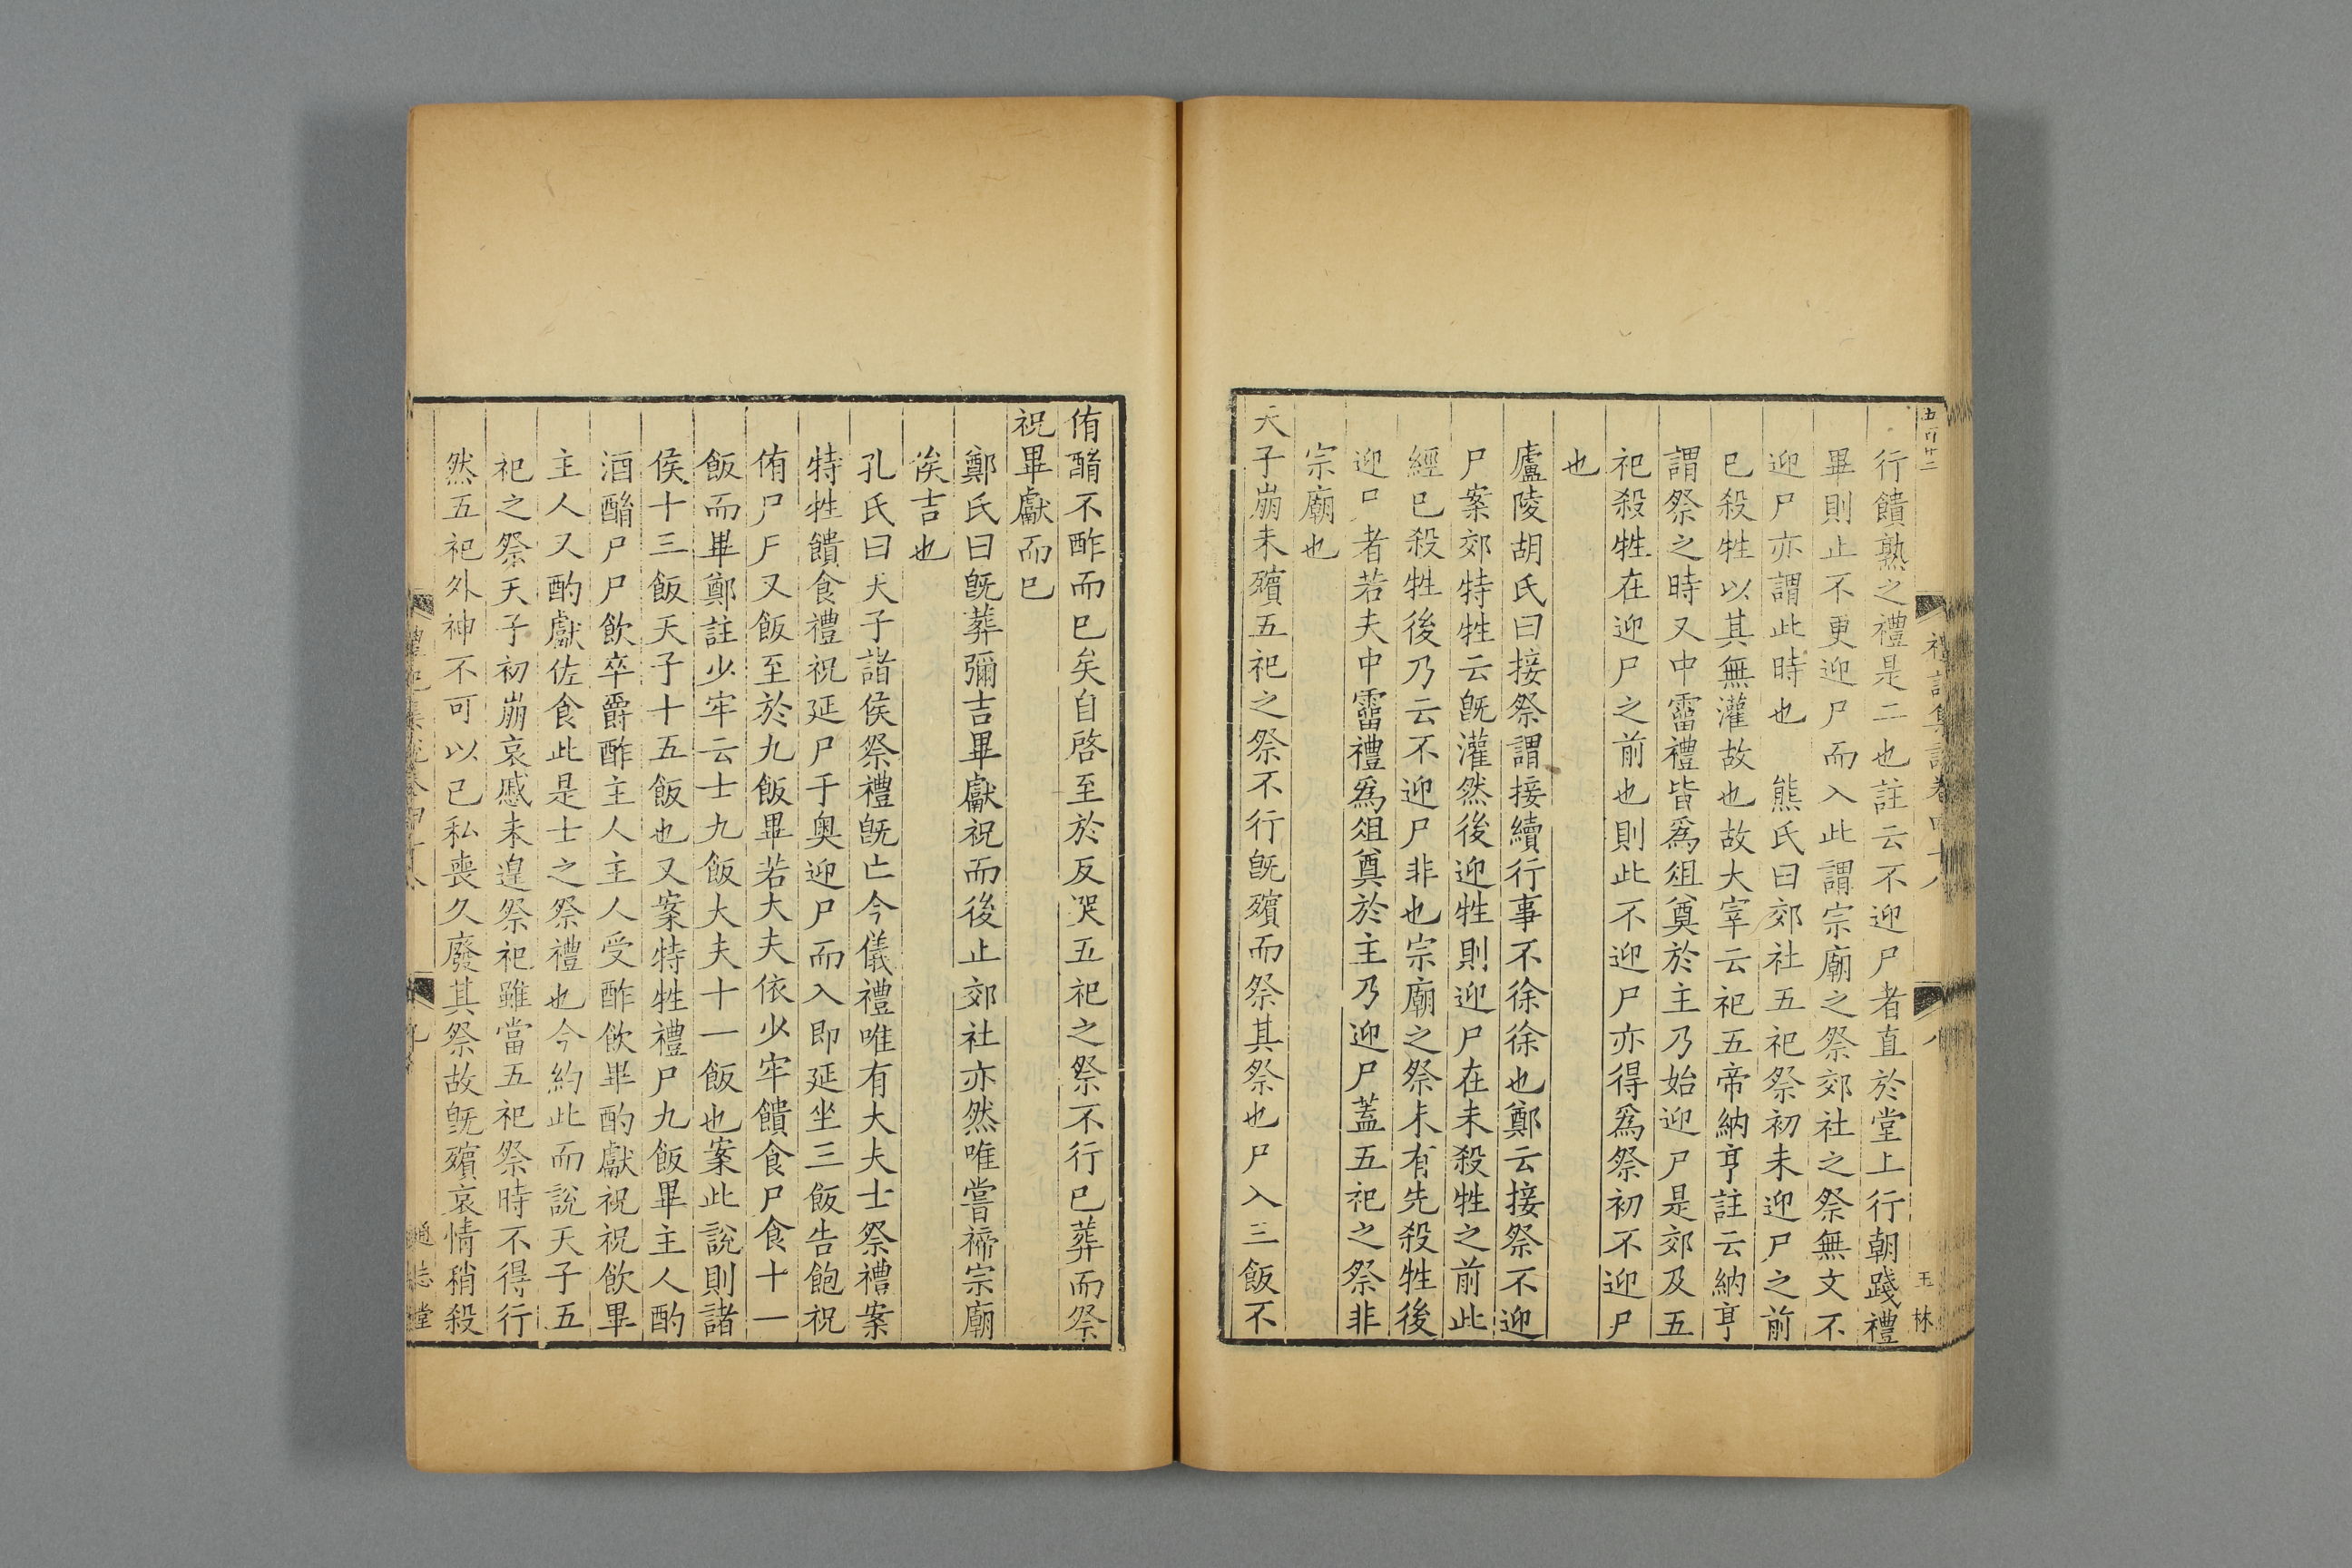 五百廿二
禮記集說卷四十八
八
玉林
行饋熟之禮是二也註云不迎尸者直於堂上行朝踐禮
畢則止不更迎尸而入此謂宗廟之祭郊社之祭無文不
迎尸亦謂此時也　熊氏曰郊社五祀祭初未迎尸之前
已殺牲以其無灌故也故大宰云祀五帝納亨註云納亨
謂祭之時又中霤禮皆爲俎奠於主乃始迎尸是郊及五
祀殺牲在迎尸之前也則此不迎尸亦得爲祭初不迎尸
也
廬陵胡氏曰接祭謂接續行事不徐徐也鄭云接祭不迎
尸案郊特牲云旣灌然後迎牲則迎尸在未殺牲之前此
經已殺牲後乃云不迎尸非也宗廟之祭未有先殺牲後
迎尸者若夫中霤禮爲俎奠於主乃迎尸蓋五祀之祭非
宗廟也
天子崩未殯五祀之祭不行旣殯而祭其祭也尸入三飯不
侑酳不酢而已矣自啓至於反哭五祀之祭不行已葬而祭
祝畢獻而已
鄭氏曰旣葬彌吉畢獻祝而後止郊社亦然唯嘗禘宗廟
俟吉也
孔氏曰天子諸侯祭禮旣亡今儀禮唯有大夫士祭禮案
特牲饋食禮祝延尸于奧迎尸而入即延坐三飯告飽祝
侑尸尸又飯至於九飯畢若大夫依少牢饋食尸食十一
飯而畢鄭註少牢云士九飯大夫十一飯也案此說則諸
侯十三飯天子十五飯也又案特牲禮尸九飯畢主人酌
酒酳尸尸飲卒爵酢主人主人受酢飲畢酌獻祝祝飲畢
主人又酌獻佐食此是士之祭禮也今約此而說天子五
祀之祭天子初崩哀慼未遑祭祀雖當五祀祭時不得行
然五祀外神不可以已私喪久廢其祭故旣殯哀情稍殺
禮記集說卷四十八
九
通志堂